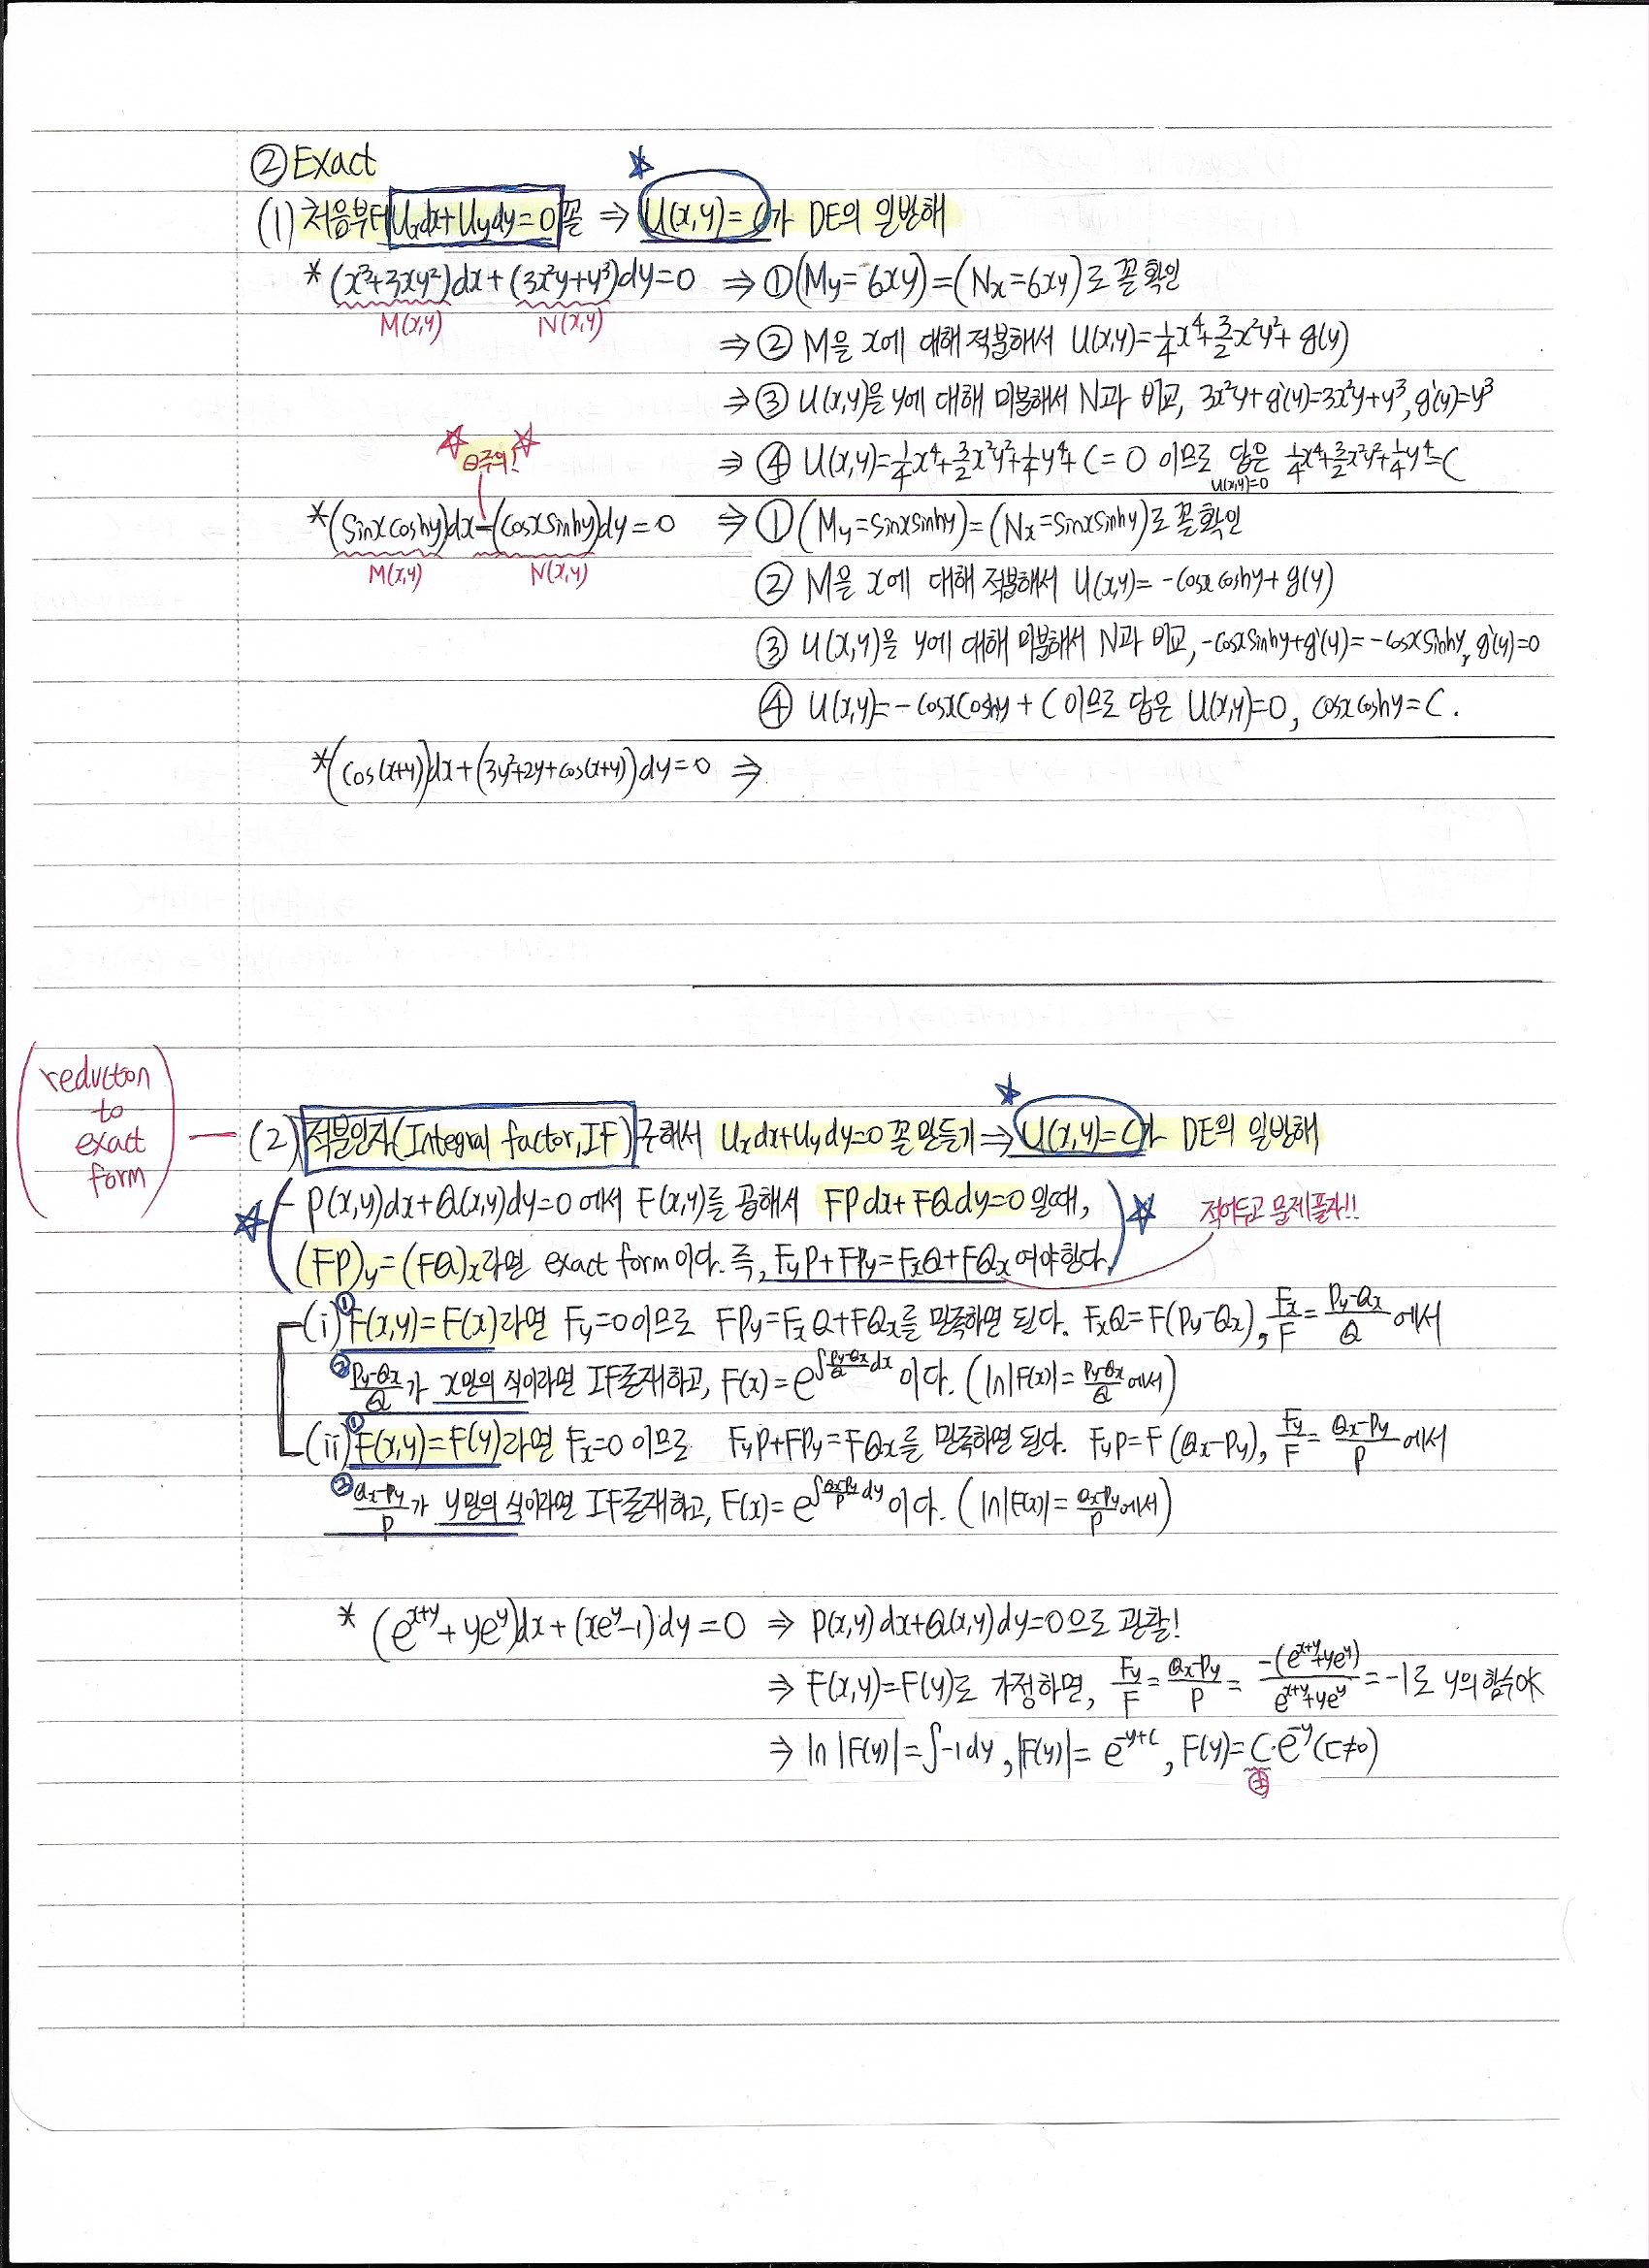 ② Exact
(1) 처음부터 Uxdx+Uydy=0 꼴 ⇒ U(x,y)=C가 DE의 일반해
* (x³+3xy²)dx+(3x²y+y³)dy=0 ⇒ ①(My=6xy)=(Nx=6xy)로 꼴 확인
M(x,y) N(x,y)
⇒ ② M을 x에 대해 적분해서 U(x,y)=1/4x⁴+3/2x²y²+g(y)
⇒ ③ U(x,y)을 y에 대해 미분해서 N과 비교, 3x²y+g'(y)=3x²y+y³, g'(y)=y³
⇒ ④ U(x,y)=1/4x⁴+3/2x²y²+1/4y⁴+C=0 이므로 답은 1/4x⁴+3/2x²y²+1/4y⁴=C
U(x,y)=0
⊖주의!
* (sinxcoshy)dx-(cosxsinhy)dy=0 ⇒ ①(My=sinxsinhy)=(Nx=sinxsinhy)로 꼴 확인
M(x,y) N(x,y)
② M을 x에 대해 적분해서 U(x,y)=-cosxcoshy+g(y)
③ U(x,y)을 y에 대해 미분해서 N과 비교, -cosxsinhy+g'(y)=-cosxsinhy, g'(y)=0
④ U(x,y)=-cosxcoshy+C 이므로 답은 U(x,y)=0, cosxcoshy=C.
* (cos(x+y))dx+(3y²+2y+cos(x+y))dy=0 ⇒
(reduction
to
exact
form)
(2) 적분인자(Integral factor, IF) 구해서 Uxdx+Uydy=0 꼴 만들기 ⇒ U(x,y)=C가 DE의 일반해
(- P(x,y)dx+Q(x,y)dy=0 에서 F(x,y)를 곱해서 FPdx+FQdy=0 일때,
적어두고 문제풀자!!
(FP)y=(FQ)x라면 exact form이다. 즉, FyP+FPy=FxQ+FQx 여야한다.)
(i) ①F(x,y)=F(x)라면 Fy=0이므로 FPy=FxQ+FQx를 만족하면 된다. FxQ=F(Py-Qx), Fx/F=(Py-Qx)/Q 에서
②(Py-Qx)/Q가 x만의 식이라면 IF존재하고, F(x)=e^∫(Py-Qx)/Q dx 이다. (ln|F(x)|=(Py-Qx)/Q에서)
(ii) ①F(x,y)=F(y)라면 Fx=0 이므로 FyP+FPy=FQx를 만족하면 된다. FyP=F(Qx-Py), Fy/F=(Qx-Py)/P 에서
②(Qx-Py)/P가 y만의 식이라면 IF존재하고, F(x)=e^∫(Qx-Py)/P dy 이다. (ln|F(x)|=(Qx-Py)/P에서)
* (e^(x+y)+ye^y)dx+(xe^y-1)dy=0 ⇒ P(x,y)dx+Q(x,y)dy=0으로 관찰!
⇒ F(x,y)=F(y)로 가정하면, Fy/F=(Qx-Py)/P=-(e^(x+y)+ye^y)/(e^(x+y)+ye^y)=-1로 y의 함수OK
⇒ ln|F(y)|=∫-1dy, |F(y)|=e^(-y+C), F(y)=C·e^(-y)(C≠0)